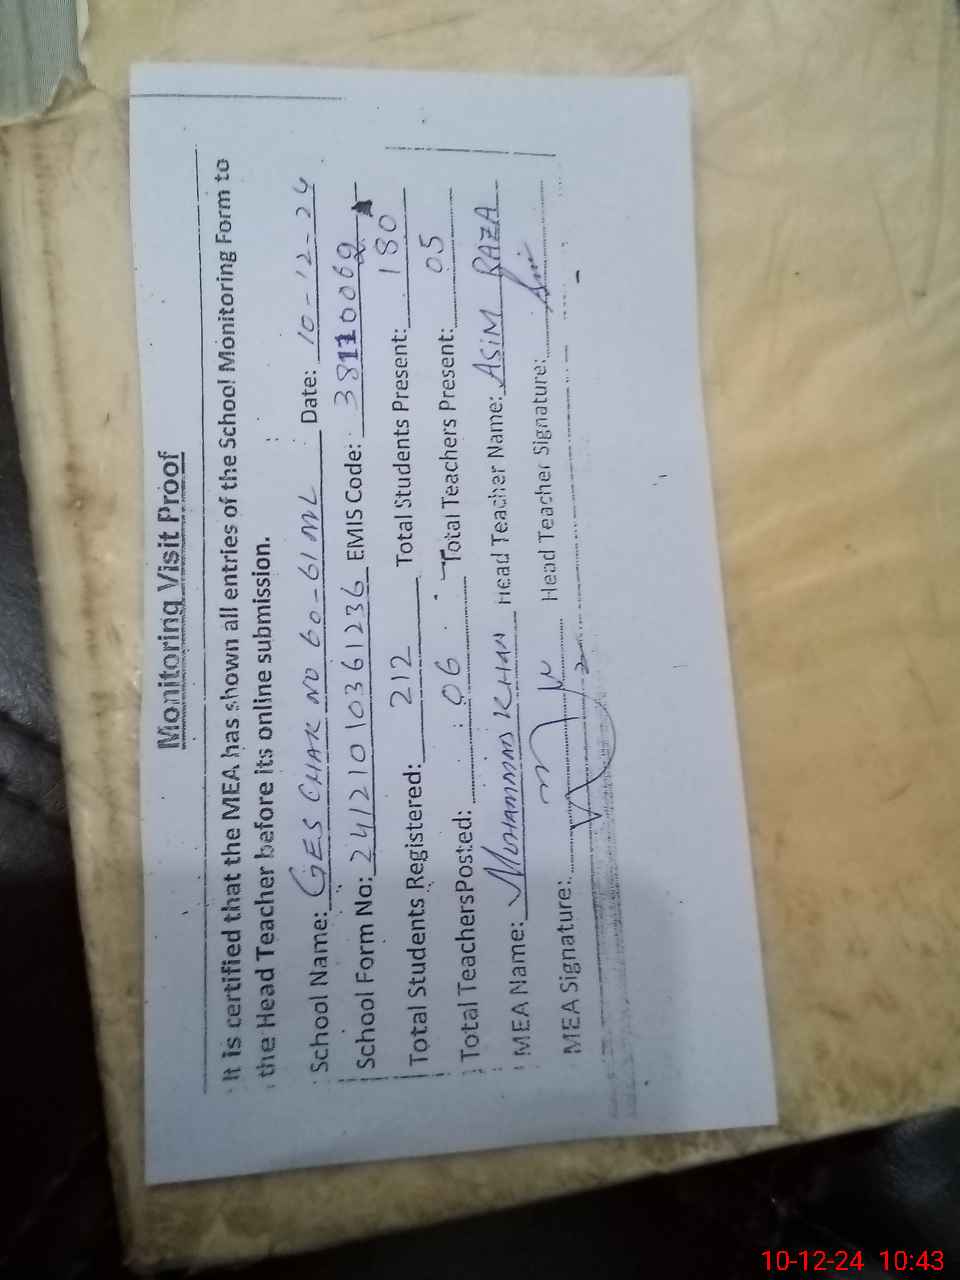 Monitoring Visit Proof
It is certified that the MEA has shown all entries of the School Monitoring Form to
the Head Teacher before its online submission.
School Name: GES CHAK NO 60-61 ML Date: 10-12-24
School Form No: 24121010361236 EMIS Code: 38110069
Total Students Registered: 212 Total Students Present: 180
Total Teachers Posted: 06 Total Teachers Present: 05
MEA Name: MOHAMMAD KHAN Head Teacher Name: ASIM RAZA
MEA Signature: Head Teacher Signature:
10-12-24 10:43